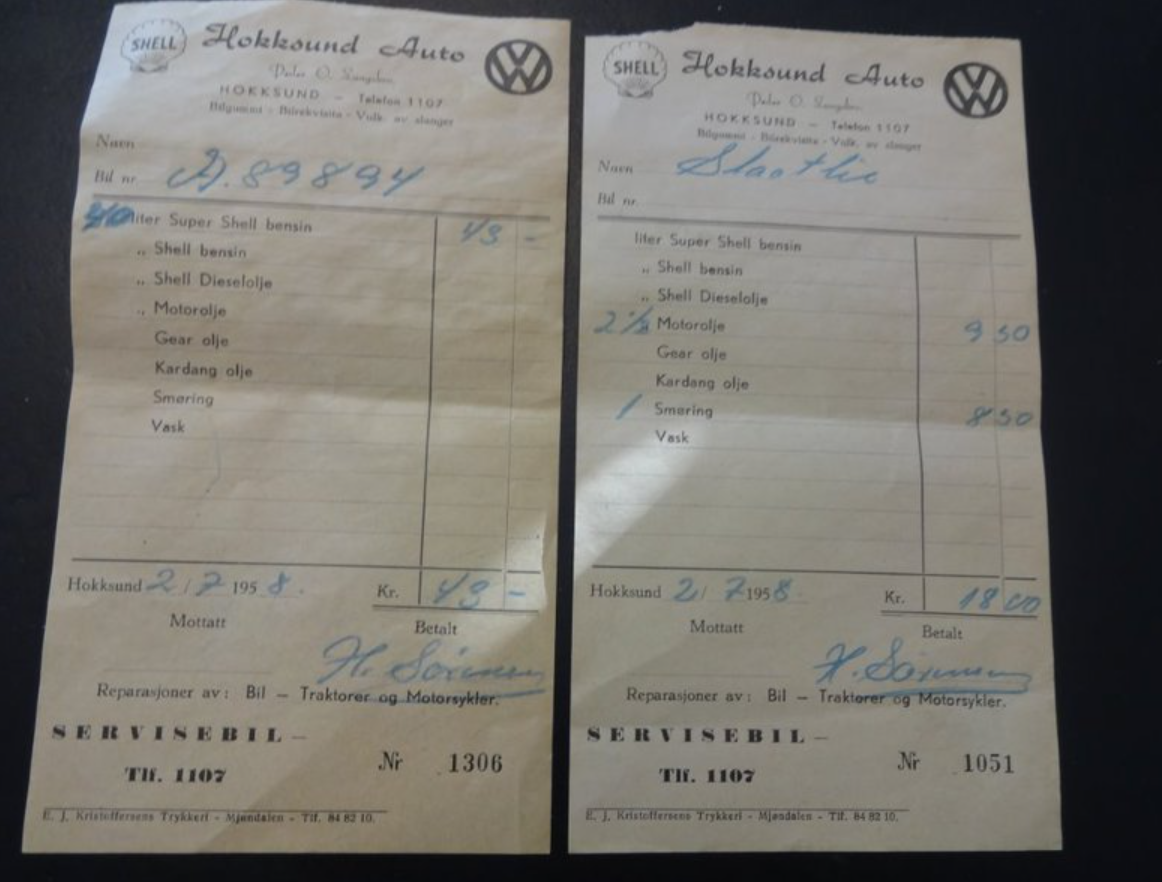 SHELL
Hokksund Auto
HOKKSUND – Telefon 1107
Bilgummi - Bilrekvisita - Vulk. av slanger
Navn
Bil nr. D. 89894
40 liter Super Shell bensin 43 -
„ Shell bensin
„ Shell Dieselolje
„ Motorolje
Gear olje
Kardang olje
Smøring
Vask
Hokksund 2 / 7 1958. Kr. 43 -
Mottatt Betalt
H. Sørensen
Reparasjoner av: Bil — Traktorer og Motorsykler.
SERVISEBIL —
Tlf. 1107 Nr 1306
E. J. Kristoffersens Trykkeri - Mjøndalen - Tlf. 84 82 10.
SHELL
Hokksund Auto
HOKKSUND – Telefon 1107
Bilgummi - Bilrekvisita - Vulk. av slanger
Navn
Bil nr.
liter Super Shell bensin
„ Shell bensin
„ Shell Dieselolje
2 1/2 Motorolje 9 50
Gear olje
Kardang olje
1 Smøring 8 50
Vask
Hokksund 2 / 7 1958. Kr. 18 00
Mottatt Betalt
H. Sørensen
Reparasjoner av: Bil — Traktorer og Motorsykler.
SERVISEBIL —
Tlf. 1107 Nr 1051
E. J. Kristoffersens Trykkeri - Mjøndalen - Tlf. 84 82 10.